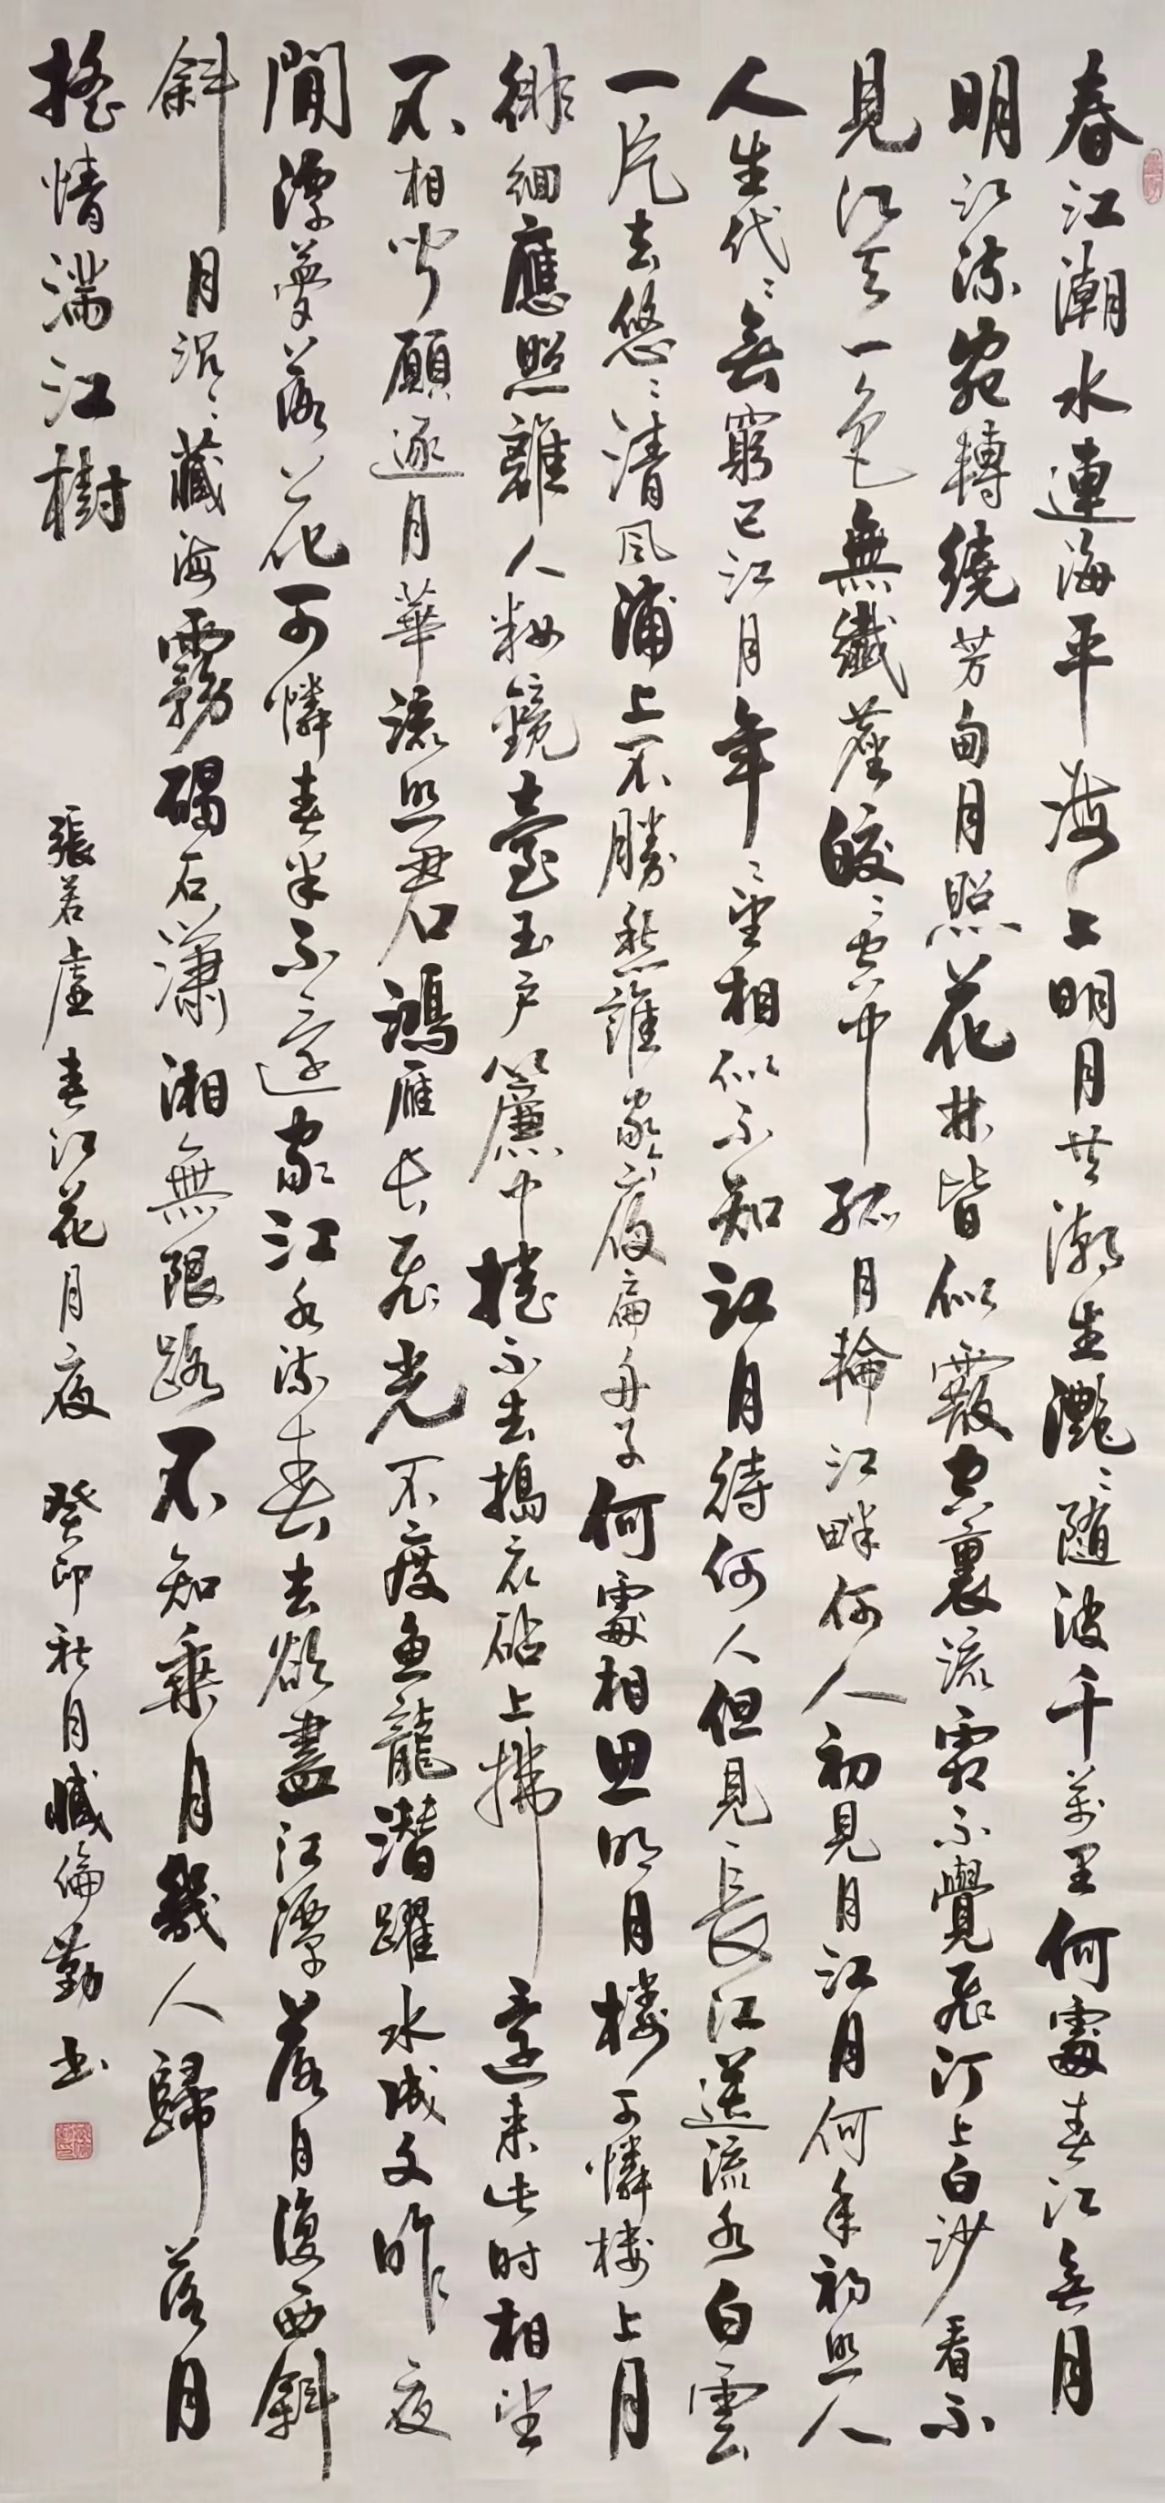 春江潮水連海平海上明月共潮生灩〻隨波千萬里何處春江無月
明江流宛轉繞芳甸月照花林皆似霰空裏流霜不覺飛汀上白沙看不
見江天一色無纖塵皎〻空中孤月輪江畔何人初見月江月何年初照人
人生代〻無窮已江月年〻望相似不知江月待何人但見長江送流水白雲
一片去悠〻清風浦上不勝愁誰家今夜扁舟子何處相思明月楼可憐楼上月
徘徊應照離人粧鏡臺玉戶簾中捲不去搗衣砧上拂還来此时相望
不相聞願逐月華流照君鴻雁長飛光不度魚龍潛躍水成文昨夜
閒潭夢落花可憐春半不還家江水流春去欲盡江潭落月復西斜
斜月沉〻藏海霧碣石瀟湘無限路不知乘月幾人歸落月
搖情滿江樹
張若虛春江花月夜 癸卯秋月臧倫勤书